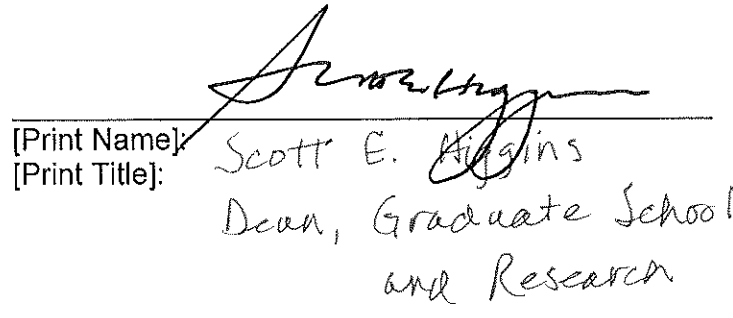 Scott E. Higgins
[Print Name]: Scott E. Higgins
[Print Title]:
Dean, Graduate School
and Research